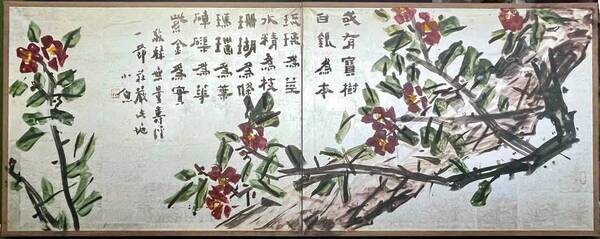 或有寶樹
白銀為本
琉璃為莖
水精為枝
珊瑚為條
瑪瑙為葉
硨磲為華
紫金為實
無量壽經
一節莊嚴之地
小魚